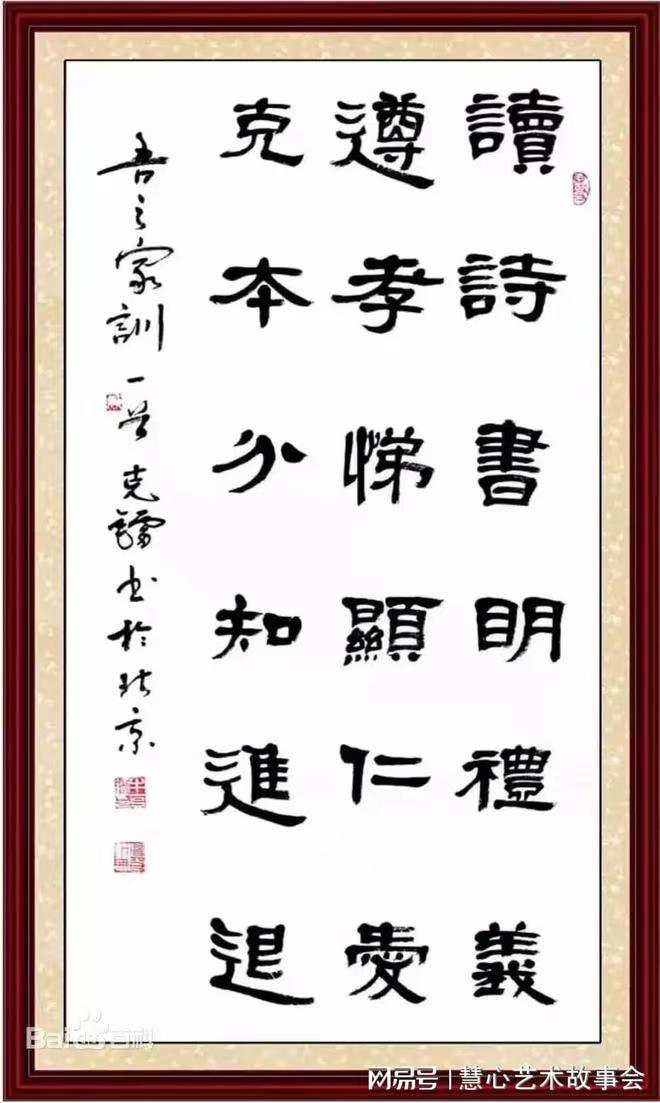 讀詩書明禮義
遵孝悌顯仁愛
克本分知進退
吾之家訓
克鐳书於北京
Bai百科
网易号|慧心艺术故事会